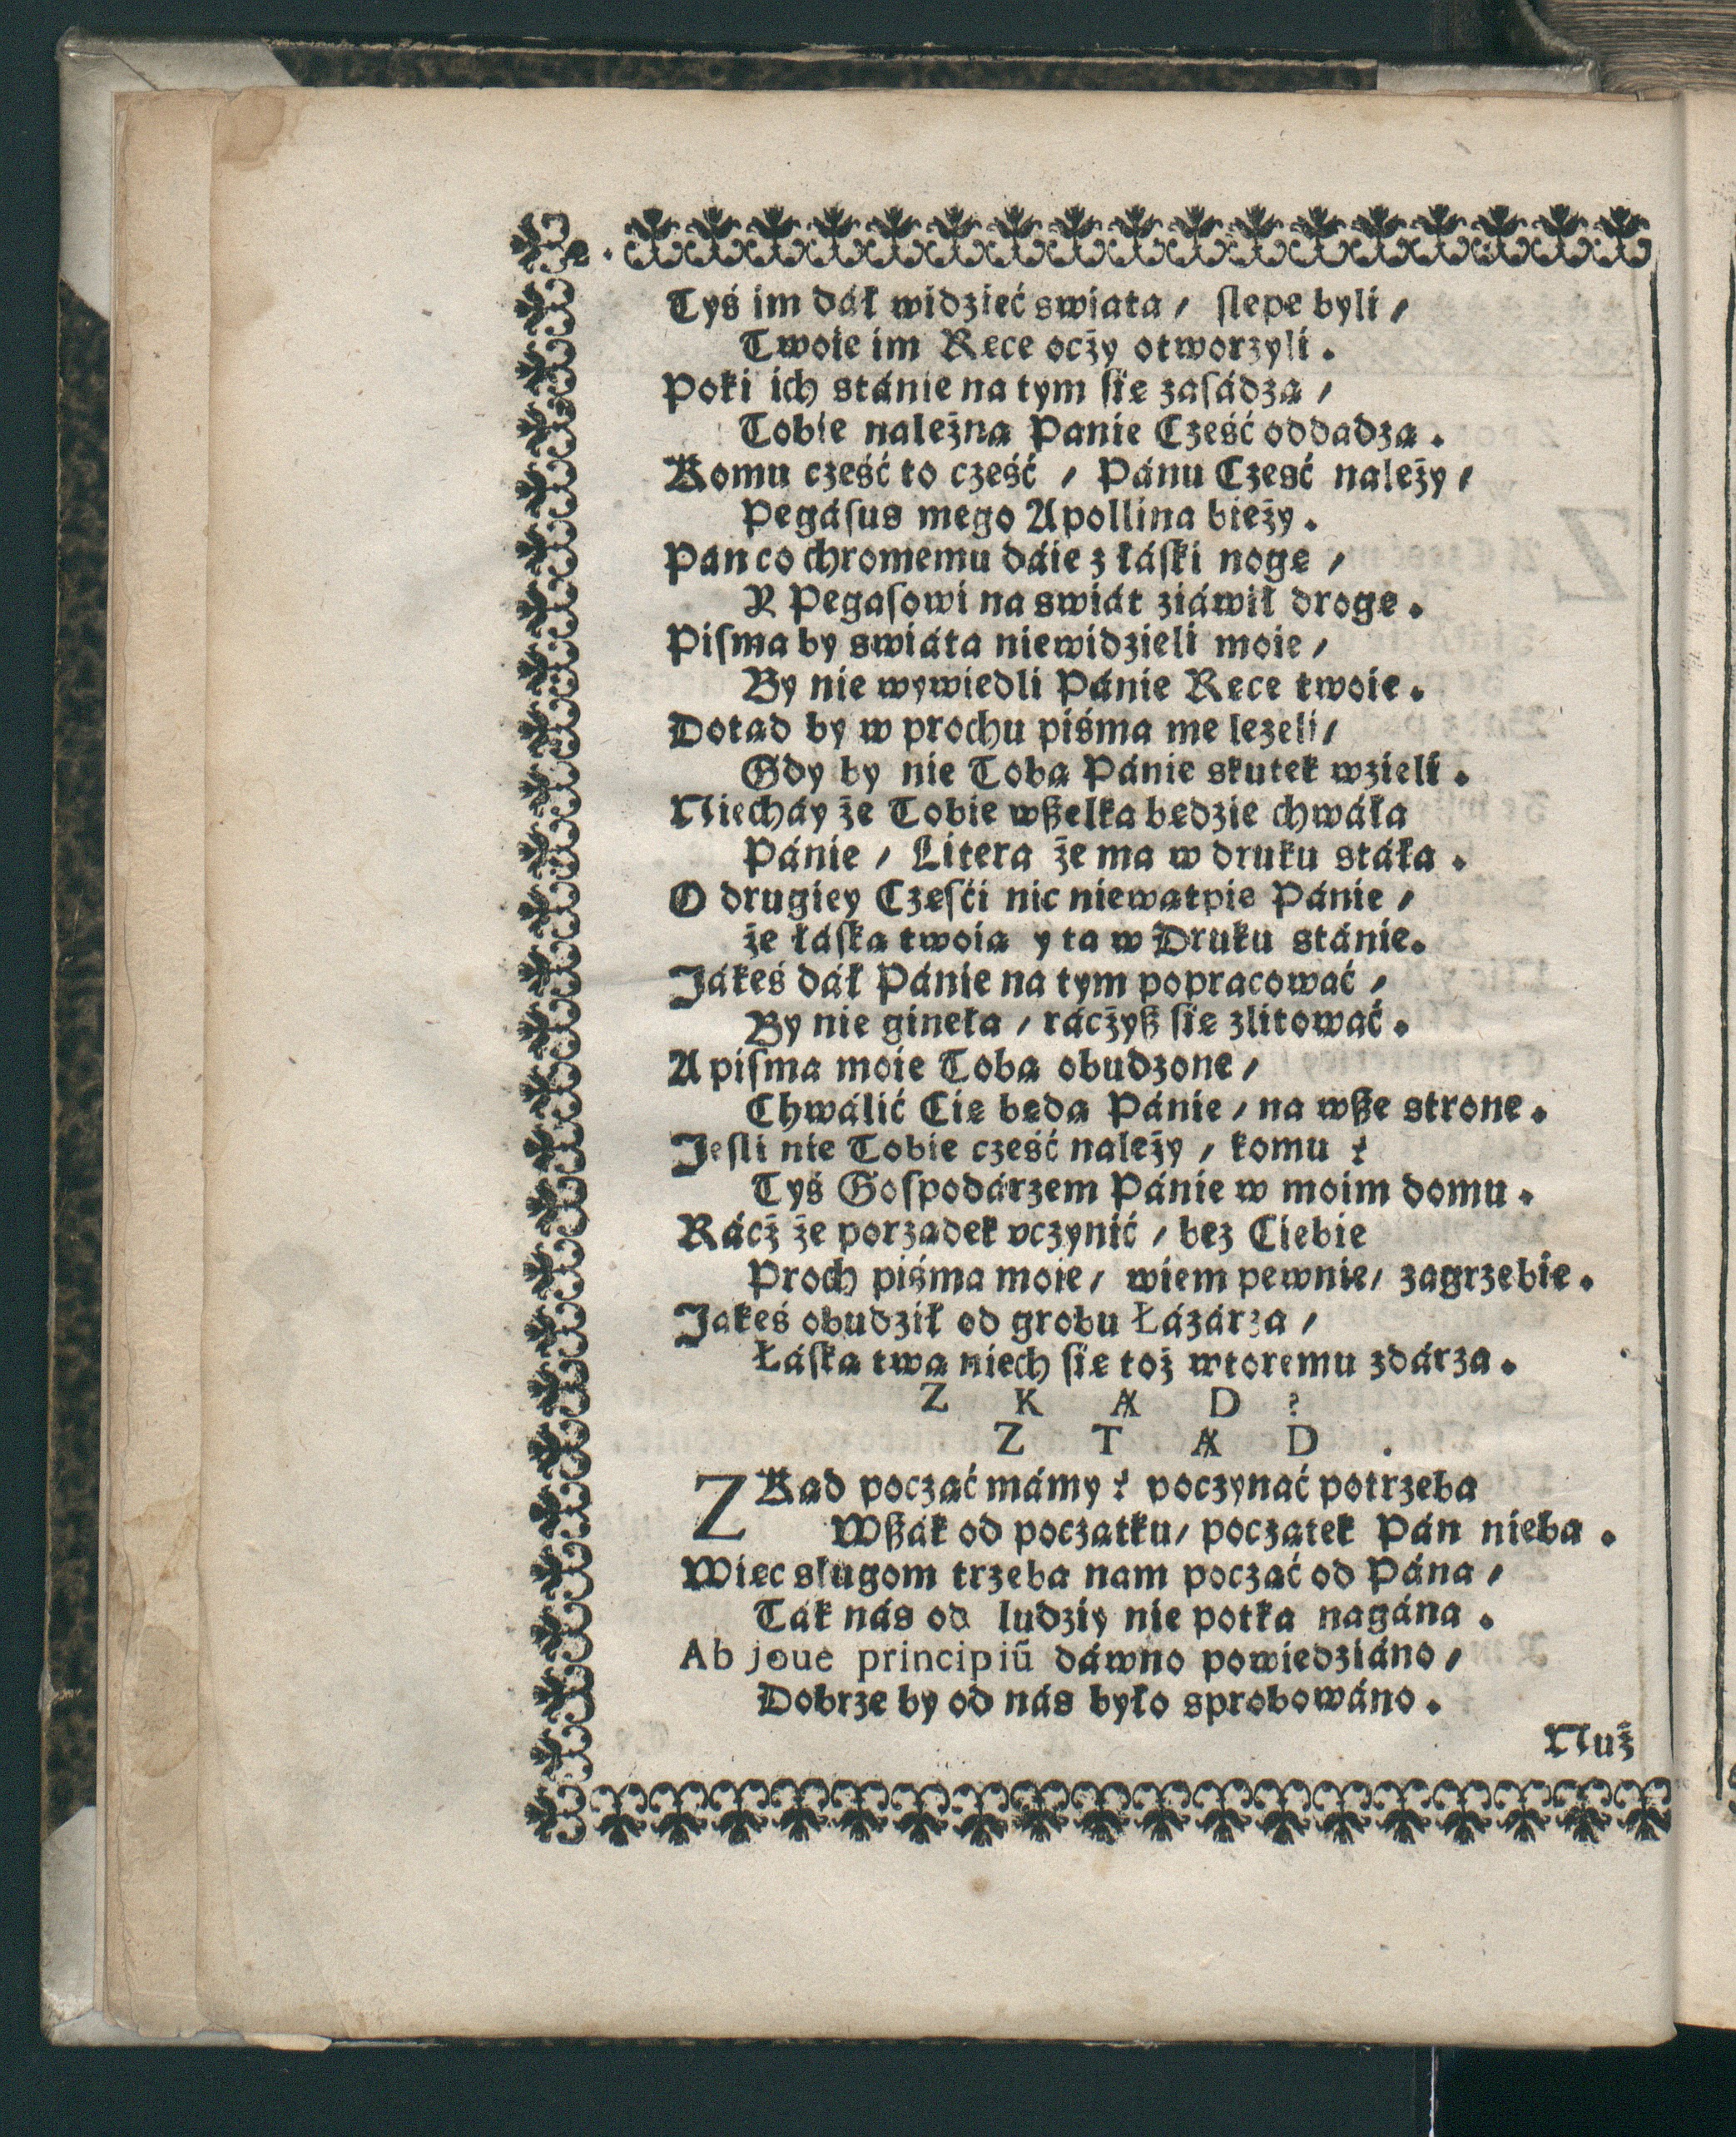 Tyś im dáł widzieć swiata / ſlepe byli /
Twoie im Ręce ocży otworzyli .
Poki ich stánie na tym ſię zaſádzą /
Tobie należną Panie Cześć oddadzą .
Komu cześć to cześć / Pánu Cżesć należy /
Pegáſus mego Apollina bieży .
Pan co chromemu dáie z łáſki nogę /
Y Pegaſowi na swiát ziáwił drogę .
Piſma by swiáta niewidzieli moie /
By nie wywiedli Pánie Ręce twoie .
Dotąd by w prochu piśma me lezeli /
Gdy by nie Tobą Pánie skutek wzieli .
Niecháy że Tobie wßelka będzie chwáła
Pánie / Litera że ma w druku stáła .
O drugiey Częſći nic niewątpię Pánie /
że łáſka twoia y ta w Druku stánie.
Jákeś dáł Pánie na tym popracować /
By nie gineła / rácżyß ſię zlitować .
A piſma moie Tobą obudzone /
Chwálić Cię będą Pánie / na wße stronę .
Jeſli nie Tobie cześć należy / komu ?
Tyś Goſpodárzem Pánie w moim domu .
Rácż że porządek vczynić / bez Ciebie
Proch piśma moie / wiem pewnie / zagrzebie .
Jakeś obudził od grobu Łázárzá /
Łáſka twa niech ſię toż wtoremu zdárza .
Z K Ą D ?
Z T Ą D .
ZKąd począć mámy ? poczynać potrzeba
Wßák od początku / początek Pán nieba .
Więc sługom trzeba nam począć od Pána /
Ták nás od ludziy nie potka nagána .
Ab joue principiũ dáwno powiedziáno /
Dobrze by od nás było sprobowáno .
Nuż